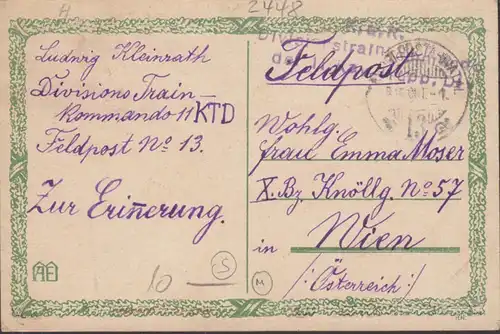 H
2448
Ludwig Kleinrath
Divisions Train-
Kommando 11 KTD
Feldpost No 13.
Zur Erin̄erung.
AE
10
S
Feldpost
Wohlg.
frau Emma Moser
X. Bz Knöllg. No 57
in Wien
/: Österreich :/
M